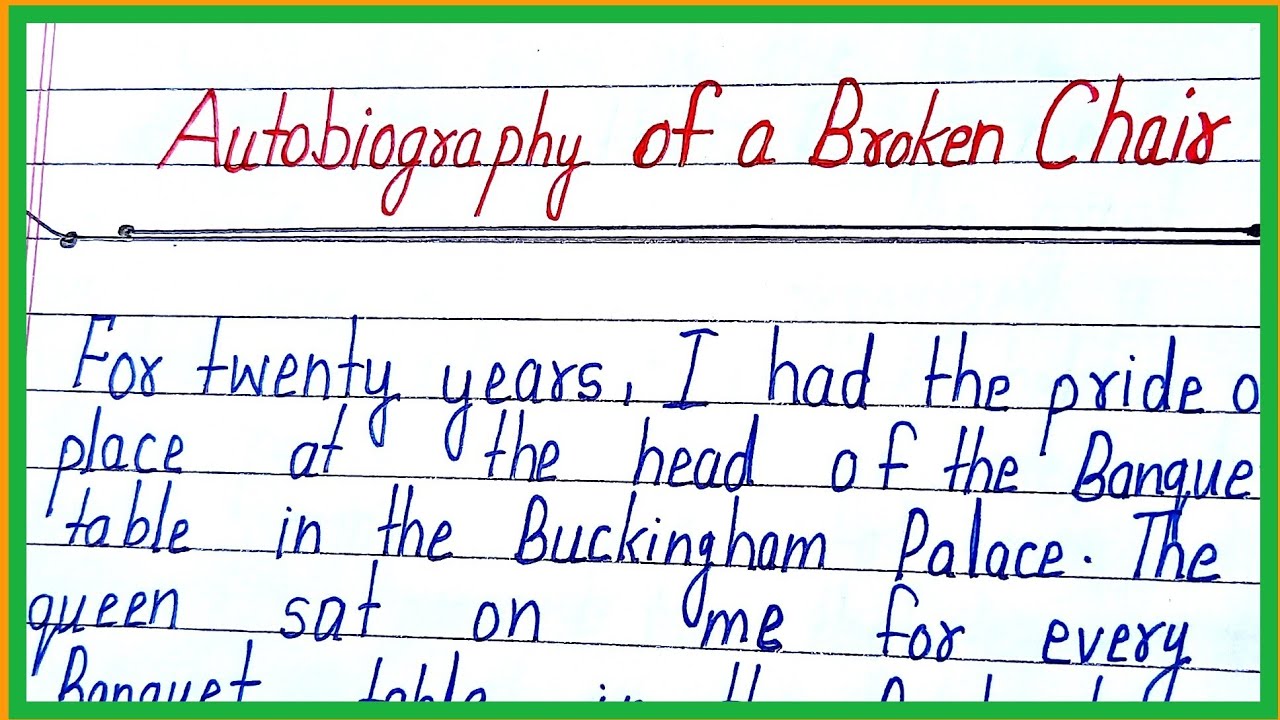 Autobiography of a Broken Chair
For twenty years, I had the pride o
place at the head of the Banque
table in the Buckingham Palace. The
queen sat on me for every
Banquet table in